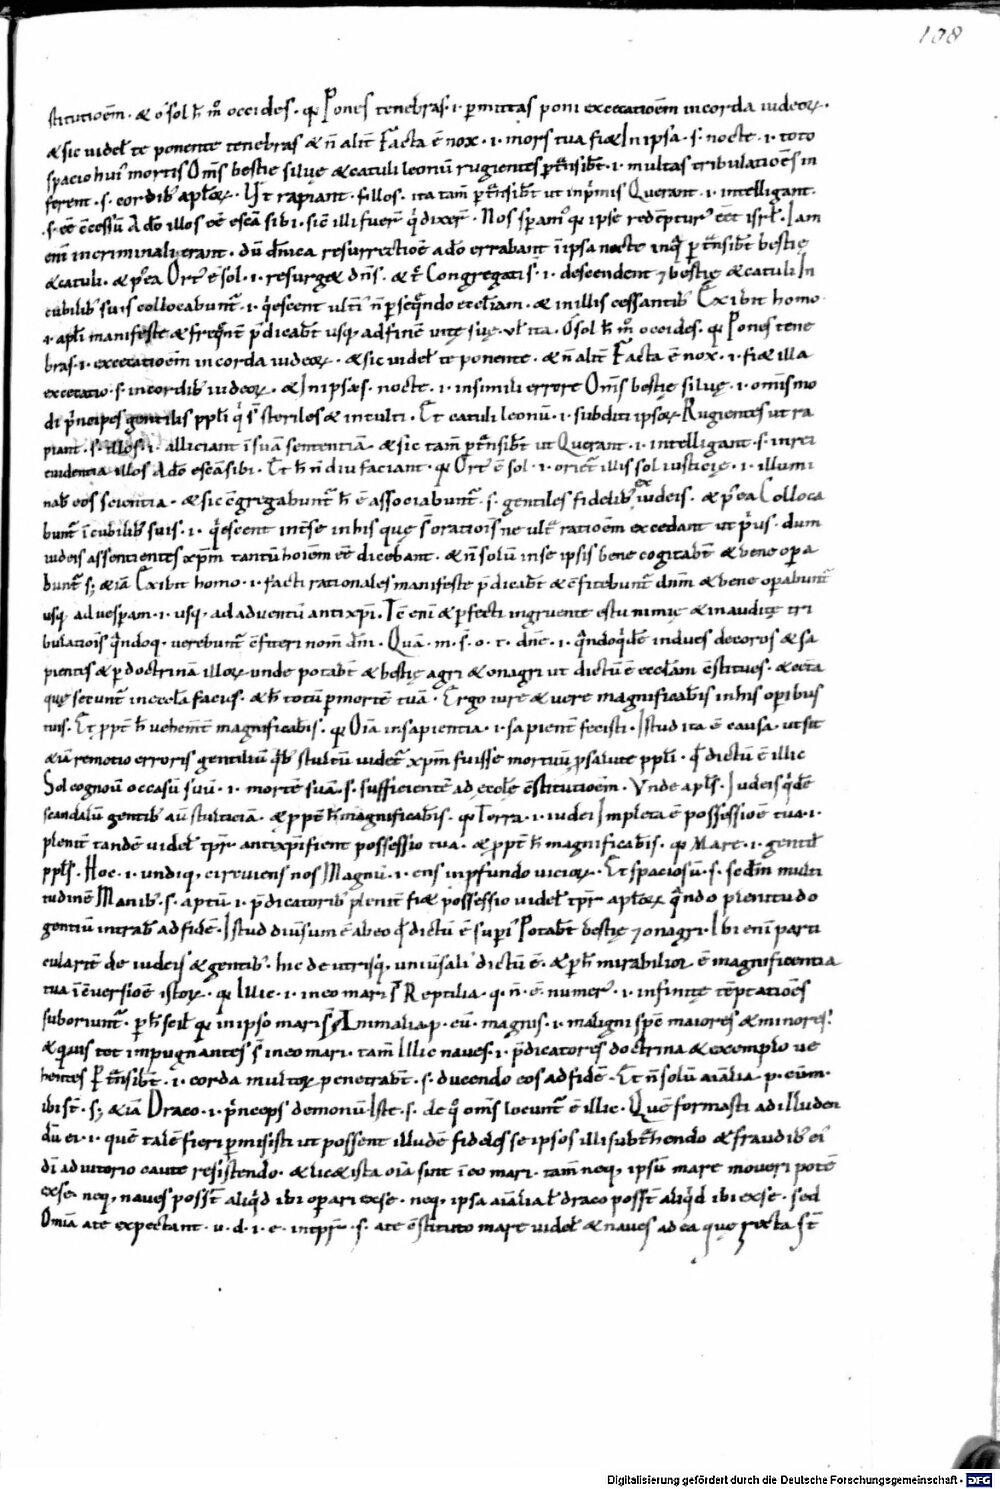 108
stitutioēm · & o sol h̄ mō occides · qꝫ Pones tenebras · i · ꝑmittas poni excecatioēm in corda iudeoꝝ ·
& sic uidel te ponente tenebras & n̄ alit Facta ē nox · i · mors tua fi& In ipsa · s · nocte · i · toto
spacio hui mortis Om̄s bestie siluę & catuli leonū rugientes ꝑtn̄sibt · i · multas tribulatioēs in
ferent · s · cordib aplōꝝ · Vt rapiant · illos · ita tam̄ ꝑtn̄sibt ut inp̄mis Querant · i · intelligant ·
A dō illos eē escā sibi · sic illi fuer q dixer · Nos spam qꝫ ipse redēptur eēt isrl · Iam
eni in criminali erant · dū dn̄ica resurrectioē a dō errabant ī ipsa nocte ꝑtn̄sibt bestię
& catuli · & p ea Ort ē sol · i · resurg& dn̄s · & t Congregati s · i · descendent ⁊ bestię & catuli In
cubilib suis collocabunt · i · qescent ulti n̄ ꝑseqndo eccliam · & in illis cessantib Exibit homo
· i · apli manifeste & freqnt p̄dicabt usqꝫ ad finē uitę suę · ul ita · O sol h̄ mō occides · qꝫ Pones tene
bras · i · excecatioēm in corda iudeoꝝ · & sic uidel te ponente · & n̄ alit Facta ē nox · i · fi& illa
excecatio · s · in cordib iudeoꝝ · & In ipsa · s · nocte · i · in simili errore Om̄s bestie siluę · i · om̄s mo
di p̄ncipes gentilis ppli q s̄t steriles & inculti · Et catuli leonū · i · subditi ipsoꝝ Rugientes ut ra
piant · s · illos · i · alliciant ī suā sententiā · & sic tam̄ ꝑtn̄sibt ut Querant · i · intelligant · s · in rei
euidentia illos A dō escā sibi · Et h̄ n̄ diu faciant · qꝫ Ort ē sol · i · oriet illis sol iusticię · i · illumi
nab eos scientia · & sic c̄gregabunt h̄ ē associabunt · s · gentiles fidelib ex iudeis · & p ea Colloca
bunt ī cubilib suis · i · qescent in ē se in his quę s̄t oratiois ne ult ratioēm excedant ut p̄us · dum
iudeis assentientes xp̄m tantū hoiem eē dicebant · & n̄ solū in se ipsis bene cogitabt & bene opa
bunt s; & iā Exibit homo · i · facti rationales manifeste p̄dicabt & c̄fitebunt dnm & bene opabunt
usqꝫ ad uespam · i · usqꝫ ad aduentū antixpi · Tc̄ eni & ꝑfecti ingruente estu nimię & inauditę tri
bulatiois qndoqꝫ uerebunt c̄fiteri nom dn̄i · Quā · m · s · o · t · dne · i · qndoqdē indues decoros & sa
pientes & ꝑ doctrinā illoꝝ unde potabt & bestię agri & onagri ut dictū ē ecclam c̄stitues · & cta
quę secunt in eccla facies · & h̄ totū ꝑ mortē tuā · Ergo iure & uere magnificabis in his opibus
tuis · Et ppt h̄ uehemt magnificabis · qꝫ Oīa in sapientia · i · sapient fecisti · Istud ita ē causa · ut sit
& iā remotio erroris gentiliū qb stultū uidet xpm fuisse mortuū ꝓ salute ppli · qd dictū ē illic
Sol cognou occasū suū · i · mortē suā · s · sufficientē ad eccle c̄stitutioēm · Vnde apls · Iudeis qdē
scandalū gentib au stulticiā · & ppt h̄ magnificabis · qꝫ Terra · i · iudei Impleta ē possessioē tua · i ·
plenit tandē uidel tp̄r antixpi fient possessio tua · & ppt h̄ magnificabis · qꝫ Mare · i · gentil
ppls · Hoc · i · undiqꝫ circuiens nos Magnū · i · ens in ꝓfundo uicioꝝ · Et spaciosū · s · sedm multi
tudinē Manib · s · aptū · i · p̄dicatorib plenit fi& possessio uidel tp̄r aploꝝ qndo plenitudo
gentiū intrab ad fidē · Istud diusum ē ab eo qd dictū ē supi Potabt bestię ⁊ onagri · Ibi eni parti
culariē de iudeis & gentib · hic de utrisqꝫ uniūsali dictū ē · & ꝑ h̄ mirabilior ē magnificentia
tua ī c̄uersioē istoꝝ · qꝫ Illic · i · in eo mari s̄t Reptilia · q · n̄ · ē · numer · i · infinitę tēptatioēs
suboriunt · ꝑ h̄ scil qꝫ in ipso mari s̄t Animalia · p · cū · magnis · i · maligni sp̄c maiores & minores ·
& quis tot impugnantes s̄t in eo mari · tam̄ Illic naues · i · p̄dicatores doctrina & exemplo ue
hentes ꝑtn̄sibt · i · corda multoꝝ penetrabt · s · ducendo eos ad fidē · Et n̄ solū aīalia · p · cūm ·
ibi s̄t · s; & iā Draco · i · p̄nceps demonū Iste · s · de q om̄s locunt ē illic · Quē formasti ad illuden
dū ei · i · quē talē fieri ꝑmisisti ut possent illudē fideles se ipsos illi subthendo & fraudib ei
di adiutorio caute resistendo · & lic& ista oīa sint ī eo mari · tam̄ neqꝫ ipsū mare moueri potē
ex se · neqꝫ naues posst aliqd ibi opari ex se · neqꝫ ipsa aīalia l draco posst aliqd ibi ex se · sed
Omīa a te expectant · u · d · i · e · in tp̄r · s · a te c̄stituto mare uidel & naues ad ea quę recta s̄t
Digitalisierung gefördert durch die Deutsche Forschungsgemeinschaft - DFG